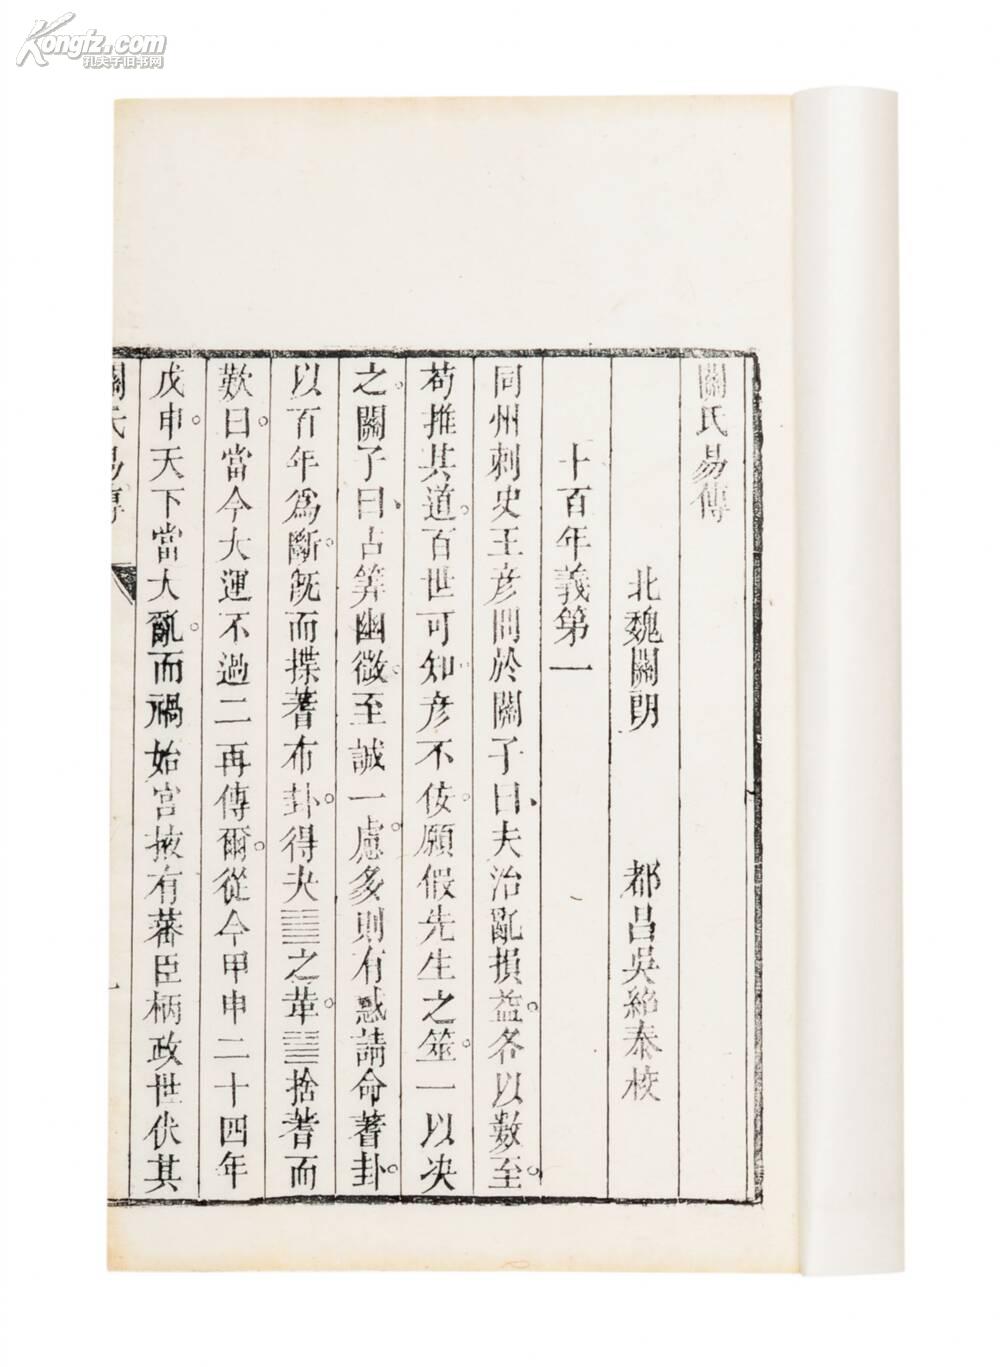 Kongfz.com
孔夫子旧书网
關氏易傳
北魏關朗 都昌吳紹泰校
卜百年義第一
同州刺史王彥問於關子曰夫治亂損益各以數至
苟推其道百世可知彥不佞願假先生之筮一以决
之關子曰占筭幽微至誠一慮多則有惑請命蓍卦
以百年爲斷旣而揲蓍布卦得夬䷪之革䷰捨蓍而
歎曰當今大運不過二再傳爾從今甲申二十四年
戊申天下當大亂而禍始宮掖有蕃臣柄政世伏其
關氏易傳 一